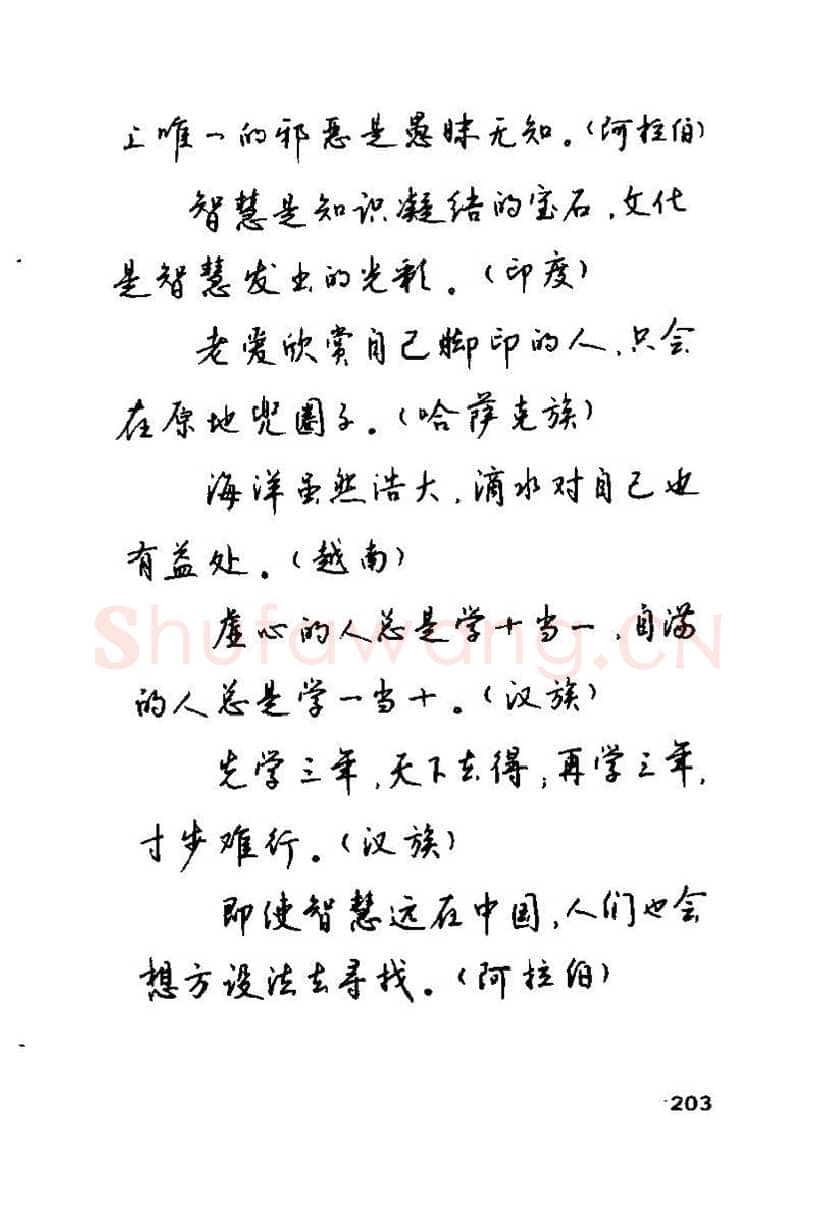 上唯一的邪恶是愚昧无知。(阿拉伯)
智慧是知识凝结的宝石,文化
是智慧发出的光彩。(印度)
老爱欣赏自己脚印的人,只会
在原地兜圈子。(哈萨克族)
海洋虽然浩大,滴水对自己也
有益处。(越南)
虚心的人总是学十当一,自满
的人总是学一当十。(汉族)
先学三年,天下去得;再学三年,
寸步难行。(汉族)
即使智慧远在中国,人们也会
想方设法去寻找。(阿拉伯)
Shufawang.CN
203